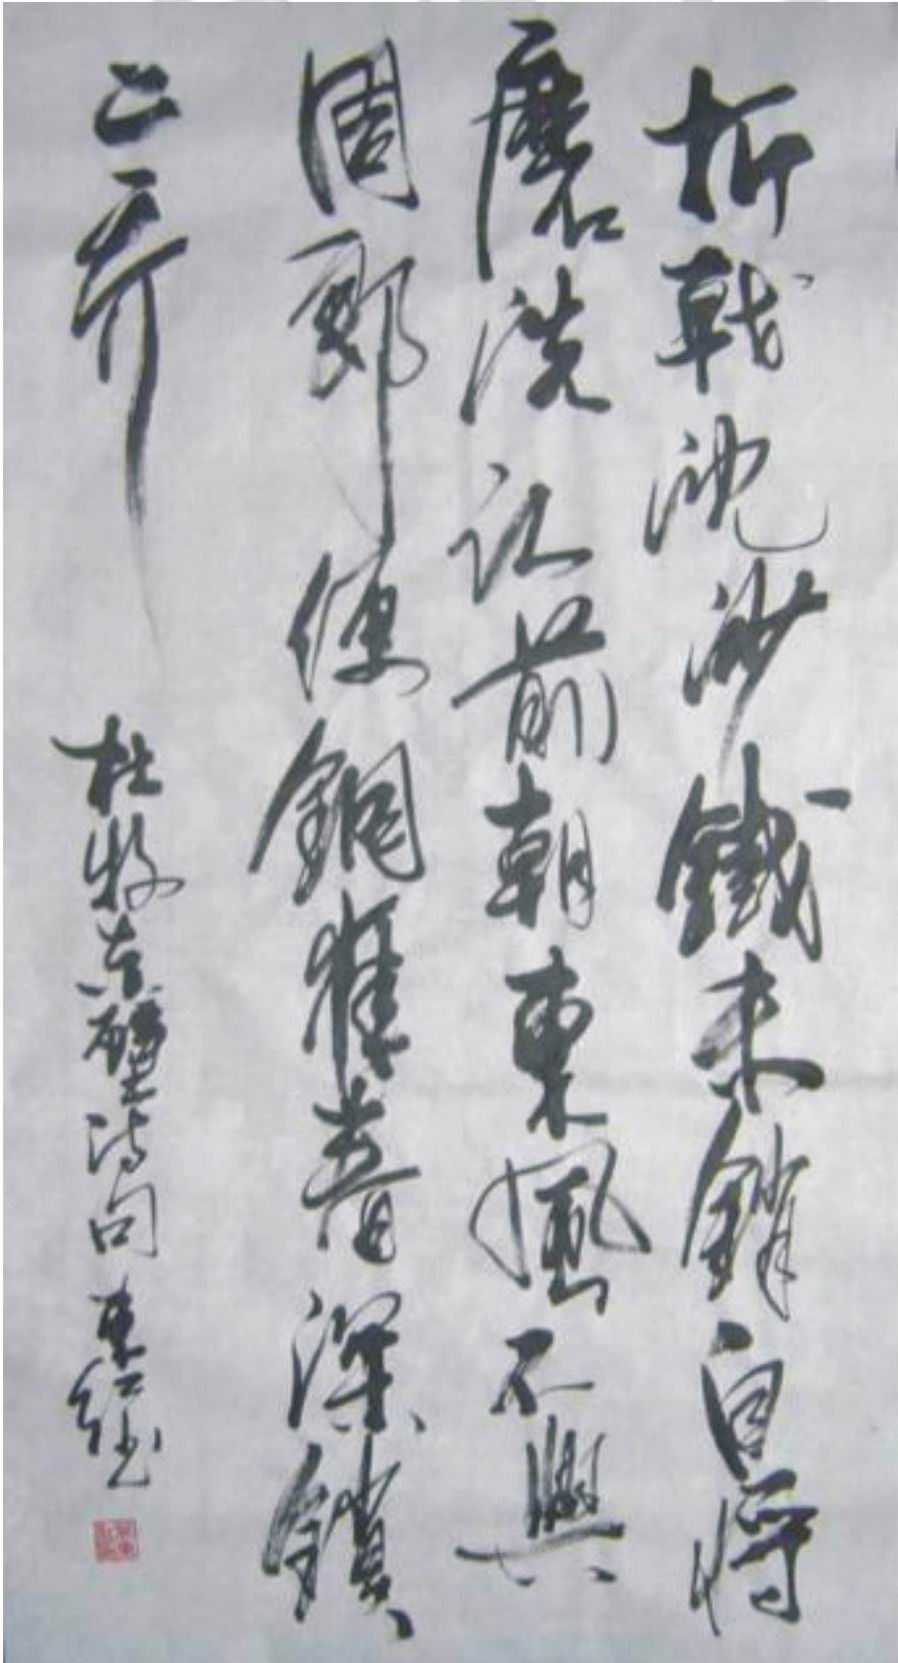 折戟沈沙鐵未銷自將
磨洗认前朝東風不與
周郎便銅雀春深鎖
二喬
杜牧赤壁诗句 東红书